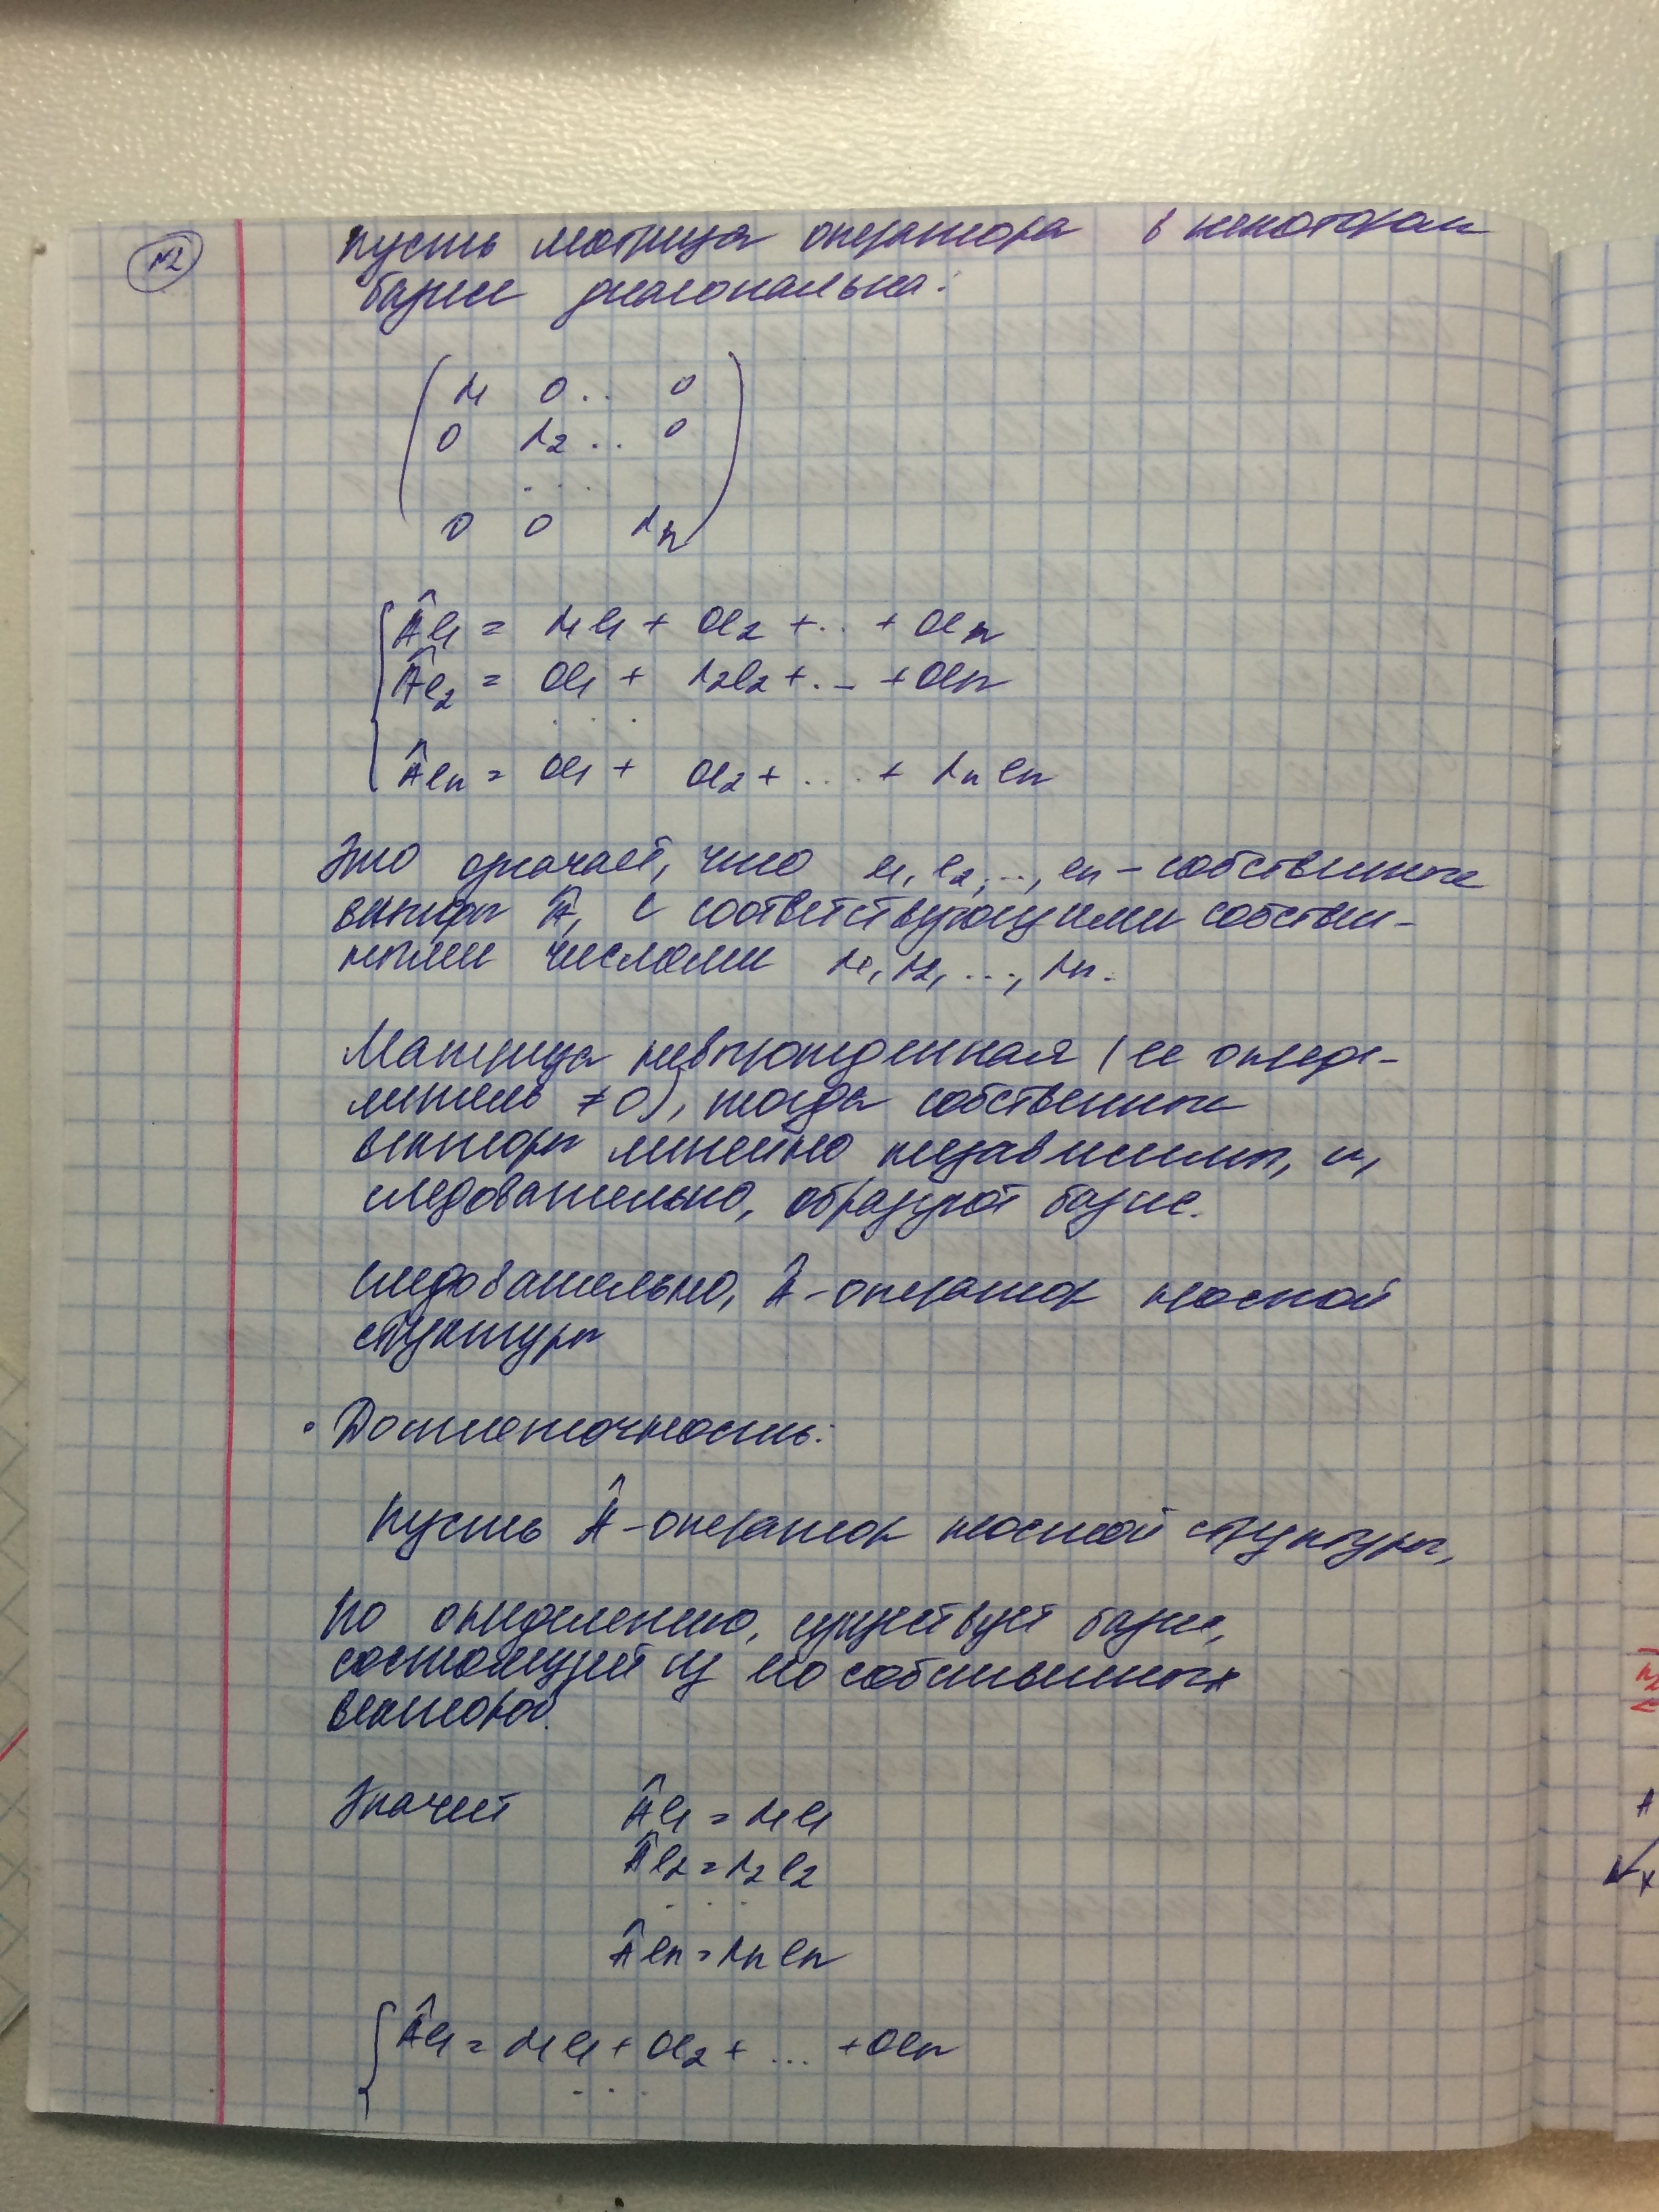 №2
Пусть матрица оператора в некотором
базисе диагональна:
( λ1 0 .. 0
0 λ2 .. 0
...
0 0 λn )
{ Âe1 = λ1e1 + 0e2 + .. + 0en
Âe2 = 0e1 + λ2e2 + .. + 0en
. . .
Âen = 0e1 + 0e2 + ... + λnen
Это означает, что e1, e2, .., en – собственные
векторы Â, с соответствующими собствен-
ными числами λ1, λ2, ..., λn.
Матрица невырожденная (ее опреде-
литель ≠ 0), тогда собственные
векторы линейно независимы, и,
следовательно, образуют базис.
Следовательно, Â – оператор простой
структуры
• Достаточность:
Пусть Â – оператор простой структуры,
По определению, существует базис,
состоящий из его собственных
векторов.
Значит Âe1 = λ1e1
Âe2 = λ2e2
. . .
Âen = λnen
{ Âe1 = λ1e1 + 0e2 + ... + 0en
...
А